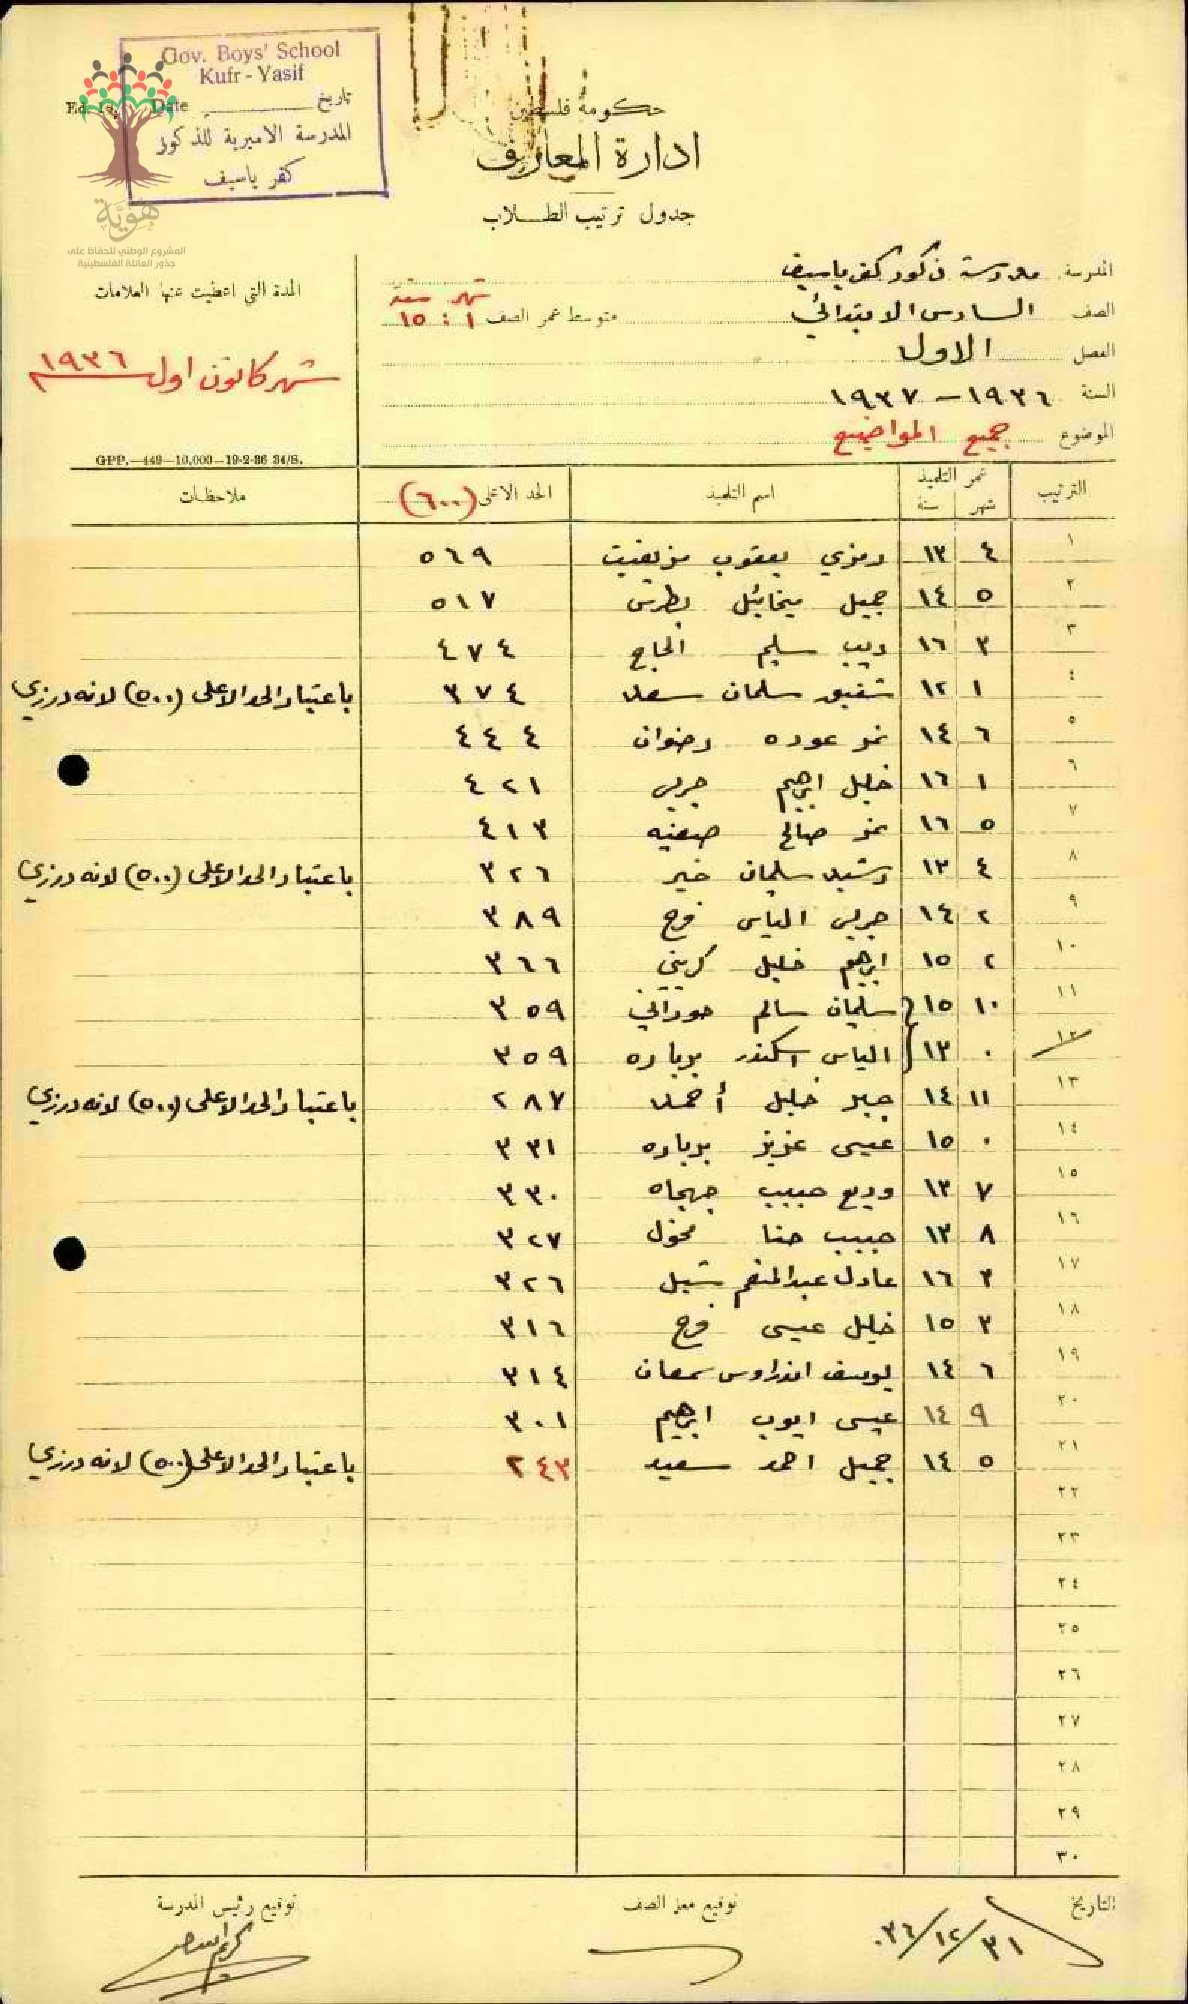 Gov. Boys' School
Kufr - Yasif
Date تاريخ
المدرسة الاميرية للذكور
كفر ياسيف
هوية
المشروع الوطني للحفاظ على
جذور العائلة الفلسطينية
حكومة فلسطين
ادارة المعارف
جدول ترتيب الطلاب
المدرسة مدرسة ذكور كفر ياسيف
الصف السادس الابتدائي متوسط عمر الصف شهر سنة ١ : ١٥
الفصل الاول
السنة ١٩٣٦ – ١٩٣٧
الموضوع جميع المواضيع
المدة التي اعطيت عنها العلامات
شهر كانون اول ١٩٣٦
GPP.—449—10,000—19-2-36 34/S.
الترتيب عمر التلميذ شهر سنة اسم التلميذ الحد الاعلى (٦٠٠) ملاحظات
١ ٤ ١٣ رمزي يعقوب ٥٦٩
٢ ٥ ١٤ جميل ميخائيل بطرس ٥١٧
٣ ٣ ١٦ ديب سليم الحاج ٤٧٤
٤ ١ ١٢ شفيق سلمان سعد ٣٧٤ باعتبار الحد الاعلى (٥٠٠) لانه درزي
٥ ٦ ١٤ نمر عوده رضوان ٤٤٤
٦ ١ ١٦ خليل ابرهيم جريس ٤٢١
٧ ٥ ١٦ نمر صالح ٤١٣
٨ ٤ ١٣ رشيد سلمان خير ٣٢٦ باعتبار الحد الاعلى (٥٠٠) لانه درزي
٩ ٢ ١٤ جريس الياس فرح ٣٨٩
١٠ ٢ ١٥ ابرهيم خليل كريني ٣٦٦
١١ ١٠ ١٥ سليمان سالم حوراني ٣٥٩
١٢ ٠ ١٣ الياس اسكندر بوباره ٣٥٩
١٣ ١١ ١٤ جبر خليل أحمد ٢٨٧ باعتبار الحد الاعلى (٥٠٠) لانه درزي
١٤ ٠ ١٥ عيسى عزيز بوباره ٣٣١
١٥ ٧ ١٣ وديع حبيب جهجاه ٣٣٠
١٦ ٨ ١٣ حبيب حنا مخول ٣٢٧
١٧ ٣ ١٦ عادل عبد المنعم شبل ٣٢٦
١٨ ٣ ١٥ خليل عيسى فرح ٣١٦
١٩ ٦ ١٤ يوسف اندراوس سمعان ٣١٤
٢٠ ٩ ١٤ عيسى ايوب ابرهيم ٣٠١
٢١ ٥ ١٤ جميل احمد سعيد ٢٤٣ باعتبار الحد الاعلى (٥٠٠) لانه درزي
٢٢
٢٣
٢٤
٢٥
٢٦
٢٧
٢٨
٢٩
٣٠
التاريخ ٣١/١٢/٣٦ توقيع معلم الصف توقيع رئيس المدرسة